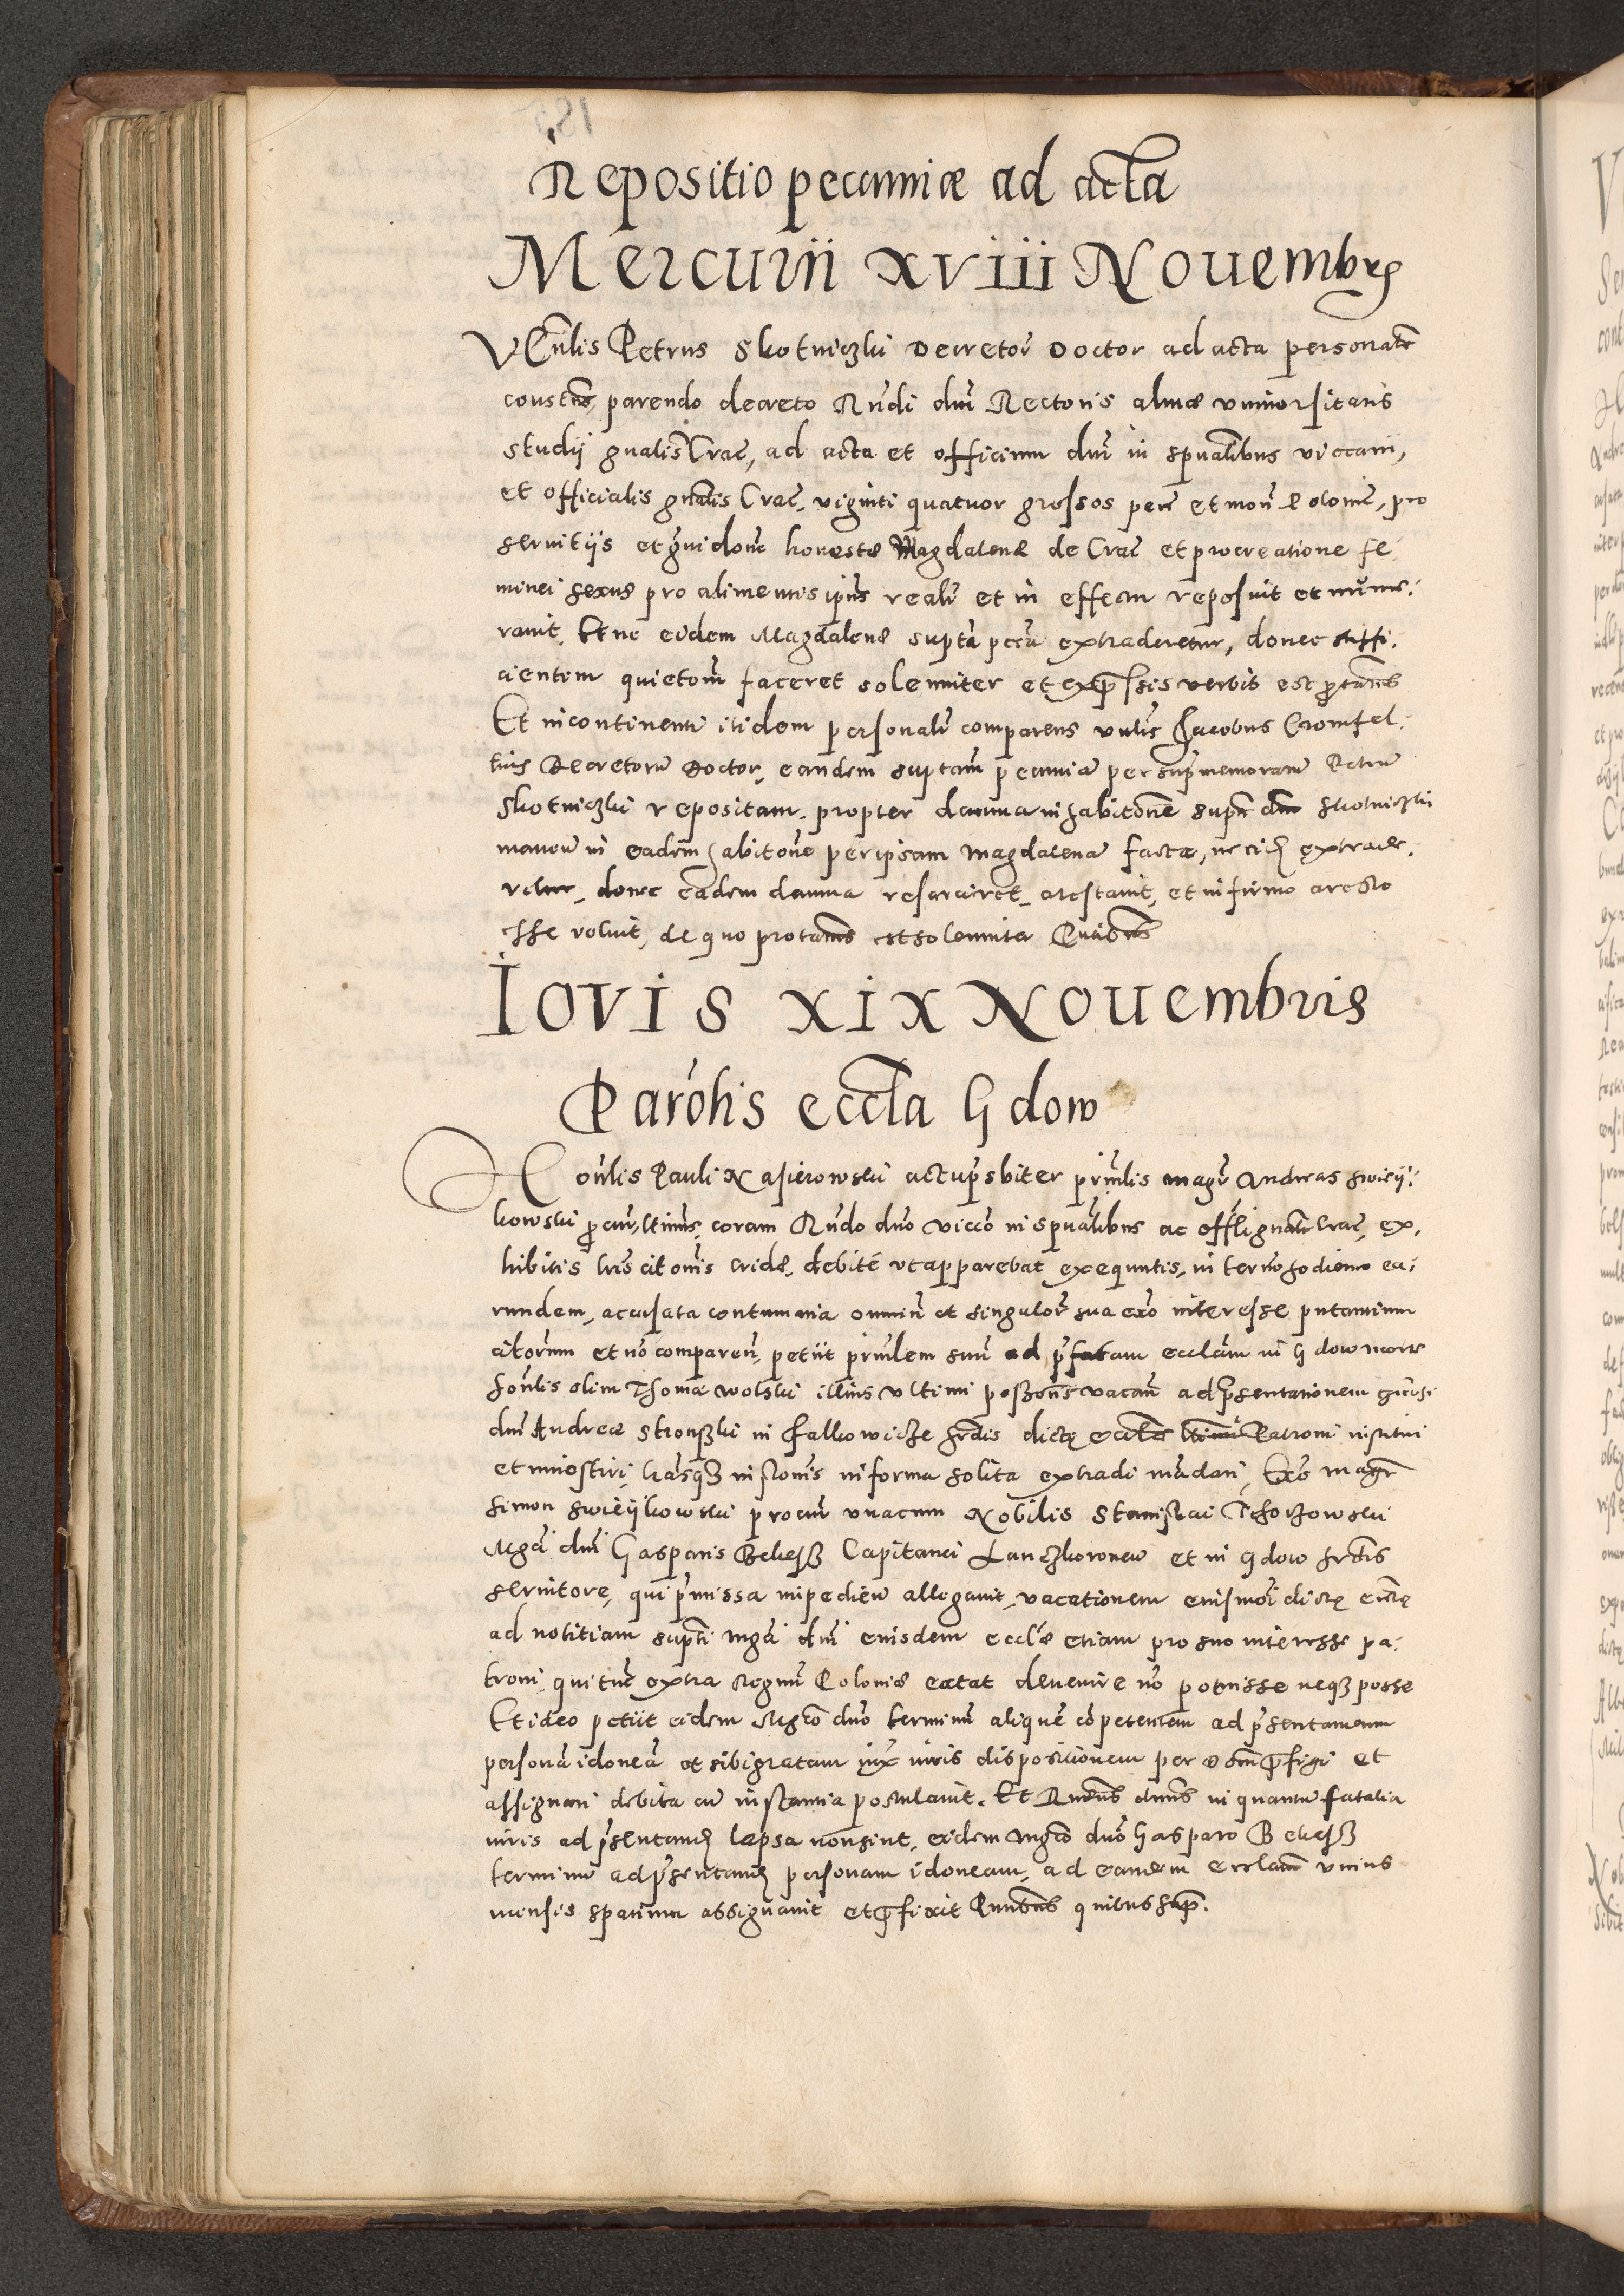 Repositio pecuniæ ad acta
Mercurii xviii Nouembrs
VEnlis Petrus Skotniczki Decretor Doctor ad acta personatr
constns, parendo decreto Rndi dni Rectoris almæ vniuersitatis
studij gnalis Crac, ad acta et officium dni in spualibus viccarii,
et officialis gnalis Crac, viginti quatuor grossos pecn et mon Polonic, pro
seruitijs et honestæ Magdalenæ de Crac et procreatione fe,
minei sexus pro alimentis ipius realr et in effectu reposuit et nume,
rauit. Et ne eidem Magdalenæ supta pccia extraderetur, donec suffi,
cientem quietom faceret solenniter et expssis verbis est ptatus
Et in continenti itidem personalr comparens vnlis Jacobus Cromfel,
tius Decretoru Doctor, eandem suptam pecunia per supmemoratu Petru
Skotniczki repositam, propter damna in habitone supti dni Skotniczki
in eadem habitone per ipsam Magdalena factæ, ne eid extrade,
retur, donec eadem damna resarciret, arestauit, et in firmo aresto
esse voluit, de quo protatus est solenniter Pntibus
Iovis xix Nouembris
Parohis eccla Gdow
Honlis Pauli Nasierowski actu psbiter prinlis magr Andreas Swieij,
kowski pcur, ltimus, coram Rndo dno vicco in spualibus ac offli gnali Crac, ex,
hibitis lris citonis cridæ, debite vt apparebat exequutis, in termo hodierno ea,
rundem, accusata contumacia omniu et singulor sua exo interesse putantium
citorum et no comparen, petiit prinlem suu ad pfatam ecclam in Gdow morte
honlis olim Thomæ Wolski illius vltimi posßons vacan ad psentationem gnosi
dni Andreæ Stronßki in Falkowicze hrdis dictę ecclæ ltimi Patroni institui
et inuestiri, lrasqz instonis in forma solita extradi mandari, Exo magr
Simon Swieijkowski procur vnacum Nobilis Stanislai
Mgci dni Gasparis Bekeß Capitanei Lanczkoronen et in Gdow hrdis
seruitore, qui pmissa impediendo allegauit, vacationem euismoi dictę ecclę
ad notitiam supti mgci dni eiusdem ecclæ etiam pro suo interesse pa,
troni qui tuc extra Regnu Poloniæ extat deuenire no potuisse neqz posse
Et ideo petiit eidem Mgco dno terminu alique copetentem ad psentandum
persona idonea et sibi gratam iux iuris dispositionem per d pfigi et
assignari debita cu instantia postulauit. Et Rndus dnus in quantu fatalia
iuris ad psentand lapsa non sint, eidem Mgco dno Gasparo Bekeß
terminu ad psentand personam idoneam, ad eandem ecclam vnius
mensis spatium assignauit et pfixit Pntibus quibus sup.